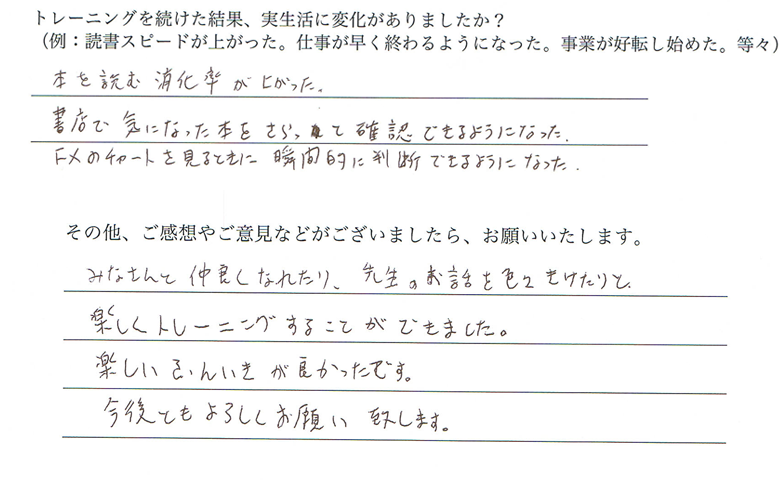 トレーニングを続けた結果、実生活に変化がありましたか？
（例：読書スピードが上がった。仕事が早く終わるようになった。事業が好転し始めた。等々）
本を読む消化率が上がった。
書店で気になった本をさらっと確認できるようになった。
FXのチャートを見るときに瞬間的に判断できるようになった。
その他、ご感想やご意見などがございましたら、お願いいたします。
みなさんと仲良くなれたり、先生のお話を色々きけたりと、
楽しくトレーニングすることができました。
楽しいふんいきが良かったです。
今後ともよろしくお願い致します。